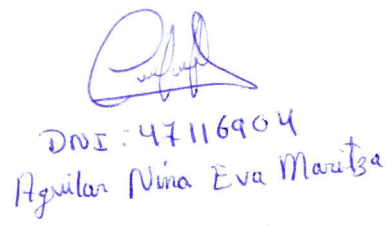 DNI : 47116904
Aguilar Nina Eva Maritza